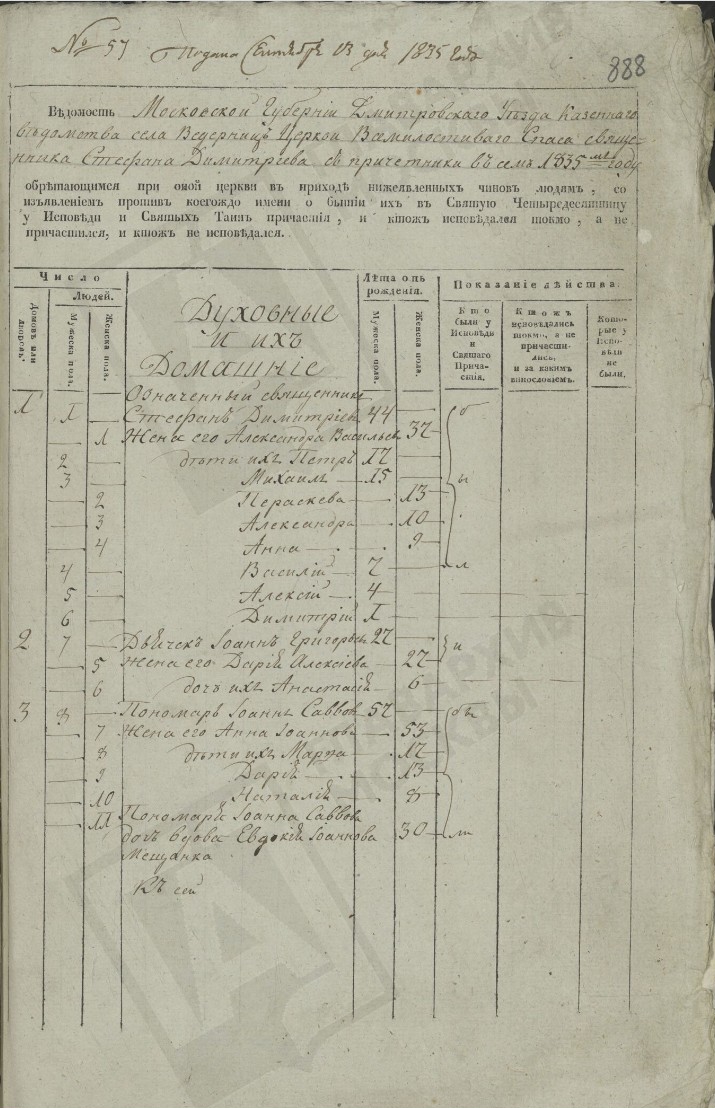 № 57 Подана Сентября 13 дня 1835 года
888
Вѣдомость Московской Губерніи Дмитровскаго Уѣзда Казеннаго
вѣдомства села Ведерницъ Церкви Всемилостиваго Спаса священ-
ника Стефана Димитріева съ причетники въ семъ 1835мъ году
обрѣтающимся при оной церкви въ приходѣ нижеявленныхъ чиновъ людямъ, со
изъявленіемъ противъ коегождо имени о бытіи ихъ въ Святую Четыредесятницу
у Исповѣди и Святыхъ Таинъ причастія, и ктожъ исповѣдался токмо, а не
причастился, и ктожъ не исповѣдался.
Число
Людей.
Домовъ или дворовъ.
Мужеска пола.
Женска пола.
Духовные
и ихъ
Домашніе
Лѣта отъ рожденія.
Мужеска пола.
Женска пола.
Показаніе дѣйства.
Кто были у Исповѣди и Святаго Причастія.
Ктожъ исповѣдались токмо, а не причастились, и за какимъ винословіемъ.
Которые у Исповѣди не были.
Означенный священникъ
1 1 Стефанъ Димитріевъ 44 б
1 Жена его Александра Васильева 37
2 дѣти ихъ Петръ 17
3 Михаилъ 15 ы
2 Параскева 13
3 Александра 10
4 Анна 9
4 Василій 7 л
5 Алексій 4
6 Димитрій 1
2 7 Дьячекъ Іоаннъ Григорьевъ 27 и
5 Жена его Дарія Алексіева 27
6 дочь ихъ Анастасія 6
3 8 Пономарь Іоаннъ Саввовъ 57 бы
7 Жена его Анна Іоаннова 53
8 дѣти ихъ Марѳа 17
9 Дарія 13
10 Наталія 8
Пономаря Іоанна Саввова
11 дочь вдова Евдокія Іоаннова 30 ли
Мещанка
Къ сей